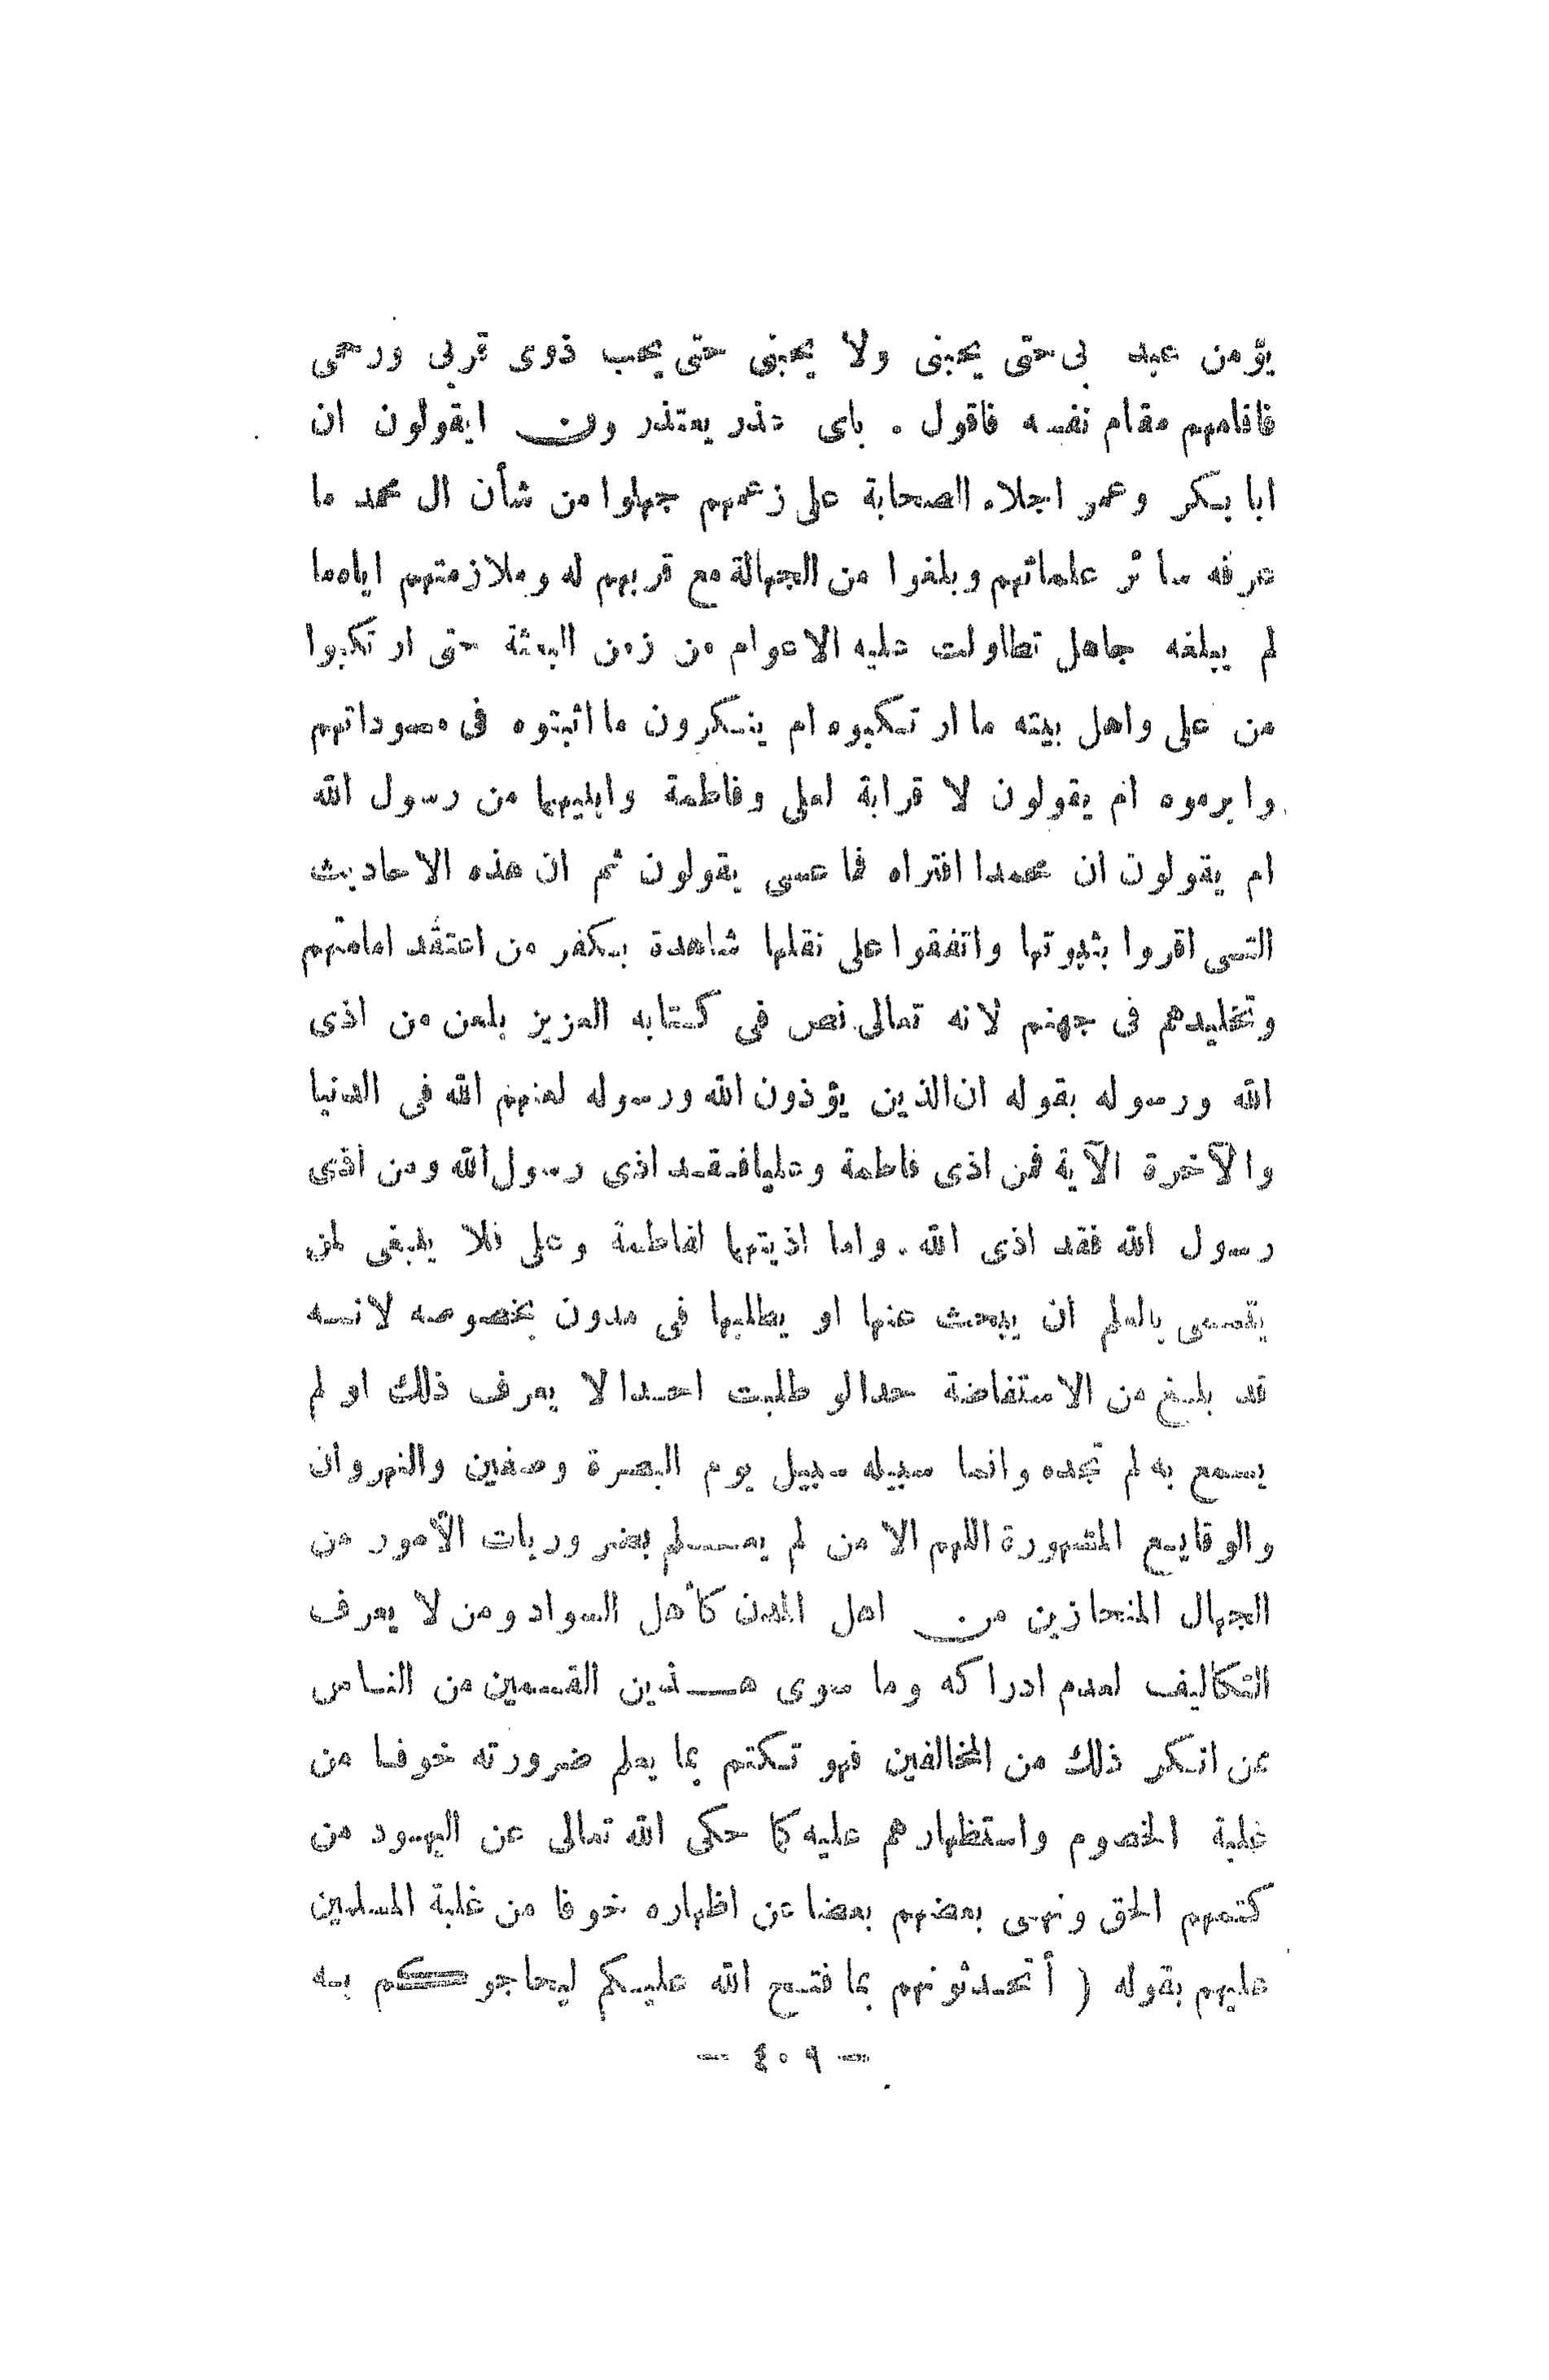 يؤمن عبد بى حتى يحبنى ولا يحبنى حتى يحب ذوى قربى ورحمى
فاقامهم مقام نفسه فاقول . باى عذر يعتذرون ايقولون ان
ابا بكر وعمر اجلاء الصحابة على زعمهم جهلوا من شأن ال محمد ما
عرفه سائر علمائهم وبلغوا من الجهالة مع قربهم له وملازمتهم اياه ما
لم يبلغه جاهل تطاولت عليه الاعوام من زمن البعثة حتى ارتكبوا
من على واهل بيته ما ارتكبوه ام ينكرون ما اثبتوه فى مصوداتهم
وابرموه ام يقولون لا قرابة لعلى وفاطمة وابنيهما من رسول الله
ام يقولون ان محمدا افتراه فما عسى يقولون ثم ان هذه الاحاديث
التسى اقروا بثبوتها واتفقوا على نقلها شاهدة بكفر من اعتقد امامتهم
وتخليدهم فى جهنم لانه تعالى نص فى كتابه العزيز بلعن من اذى
الله ورسوله بقوله ان الذين يؤذون الله ورسوله لعنهم الله فى الدنيا
والآخرة الآية فمن اذى فاطمة وعليا فقد اذى رسول الله ومن اذى
رسول الله فقد اذى الله . واما اذيتهما لفاطمة وعلى فلا ينبغى لمن
يتسمى بالعلم ان يبحث عنها او يطلبها فى مدون بخصوصه لانسه
قد بلغ من الاستفاضة حدا لو طلبت احدا لا يعرف ذلك او لم
يسمع به لم تجده وانما سبيله سبيل يوم البصرة وصفين والنهروان
والوقايع المشهورة اللهم الا من لم يعلم بضروريات الأمور من
الجهال المنحازين من اهل المدن كأهل السواد ومن لا يعرف
التكاليف لعدم ادراكه وما سوى هذين القسمين من الناس
عن انكر ذلك من المخالفين فهو تكتم بما يعلم ضرورته خوفا من
غلبة الخصوم واستظهارهم عليه كما حكى الله تعالى عن اليهود من
كتمهم الحق ونهى بعضهم بعضا عن اظهاره خوفا من غلبة المسلمين
عليهم بقوله ( أتحدثونهم بما فتح الله عليكم ليحاجوكم به
— ٤٠٩ —